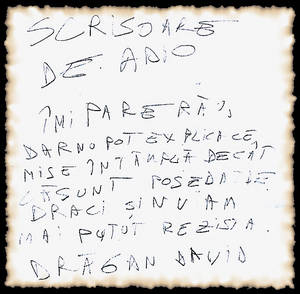 SCRISOARE
DE ADIO
ÎMI PARE RĂU,
DAR NU POT EXPLICA CE
MI SE ÎNTÂMPLĂ DECÂT
CĂ SUNT POSEDAT DE
DRACI ȘI NU AM
MAI PUTUT REZISTA.
DRĂGAN DAVID